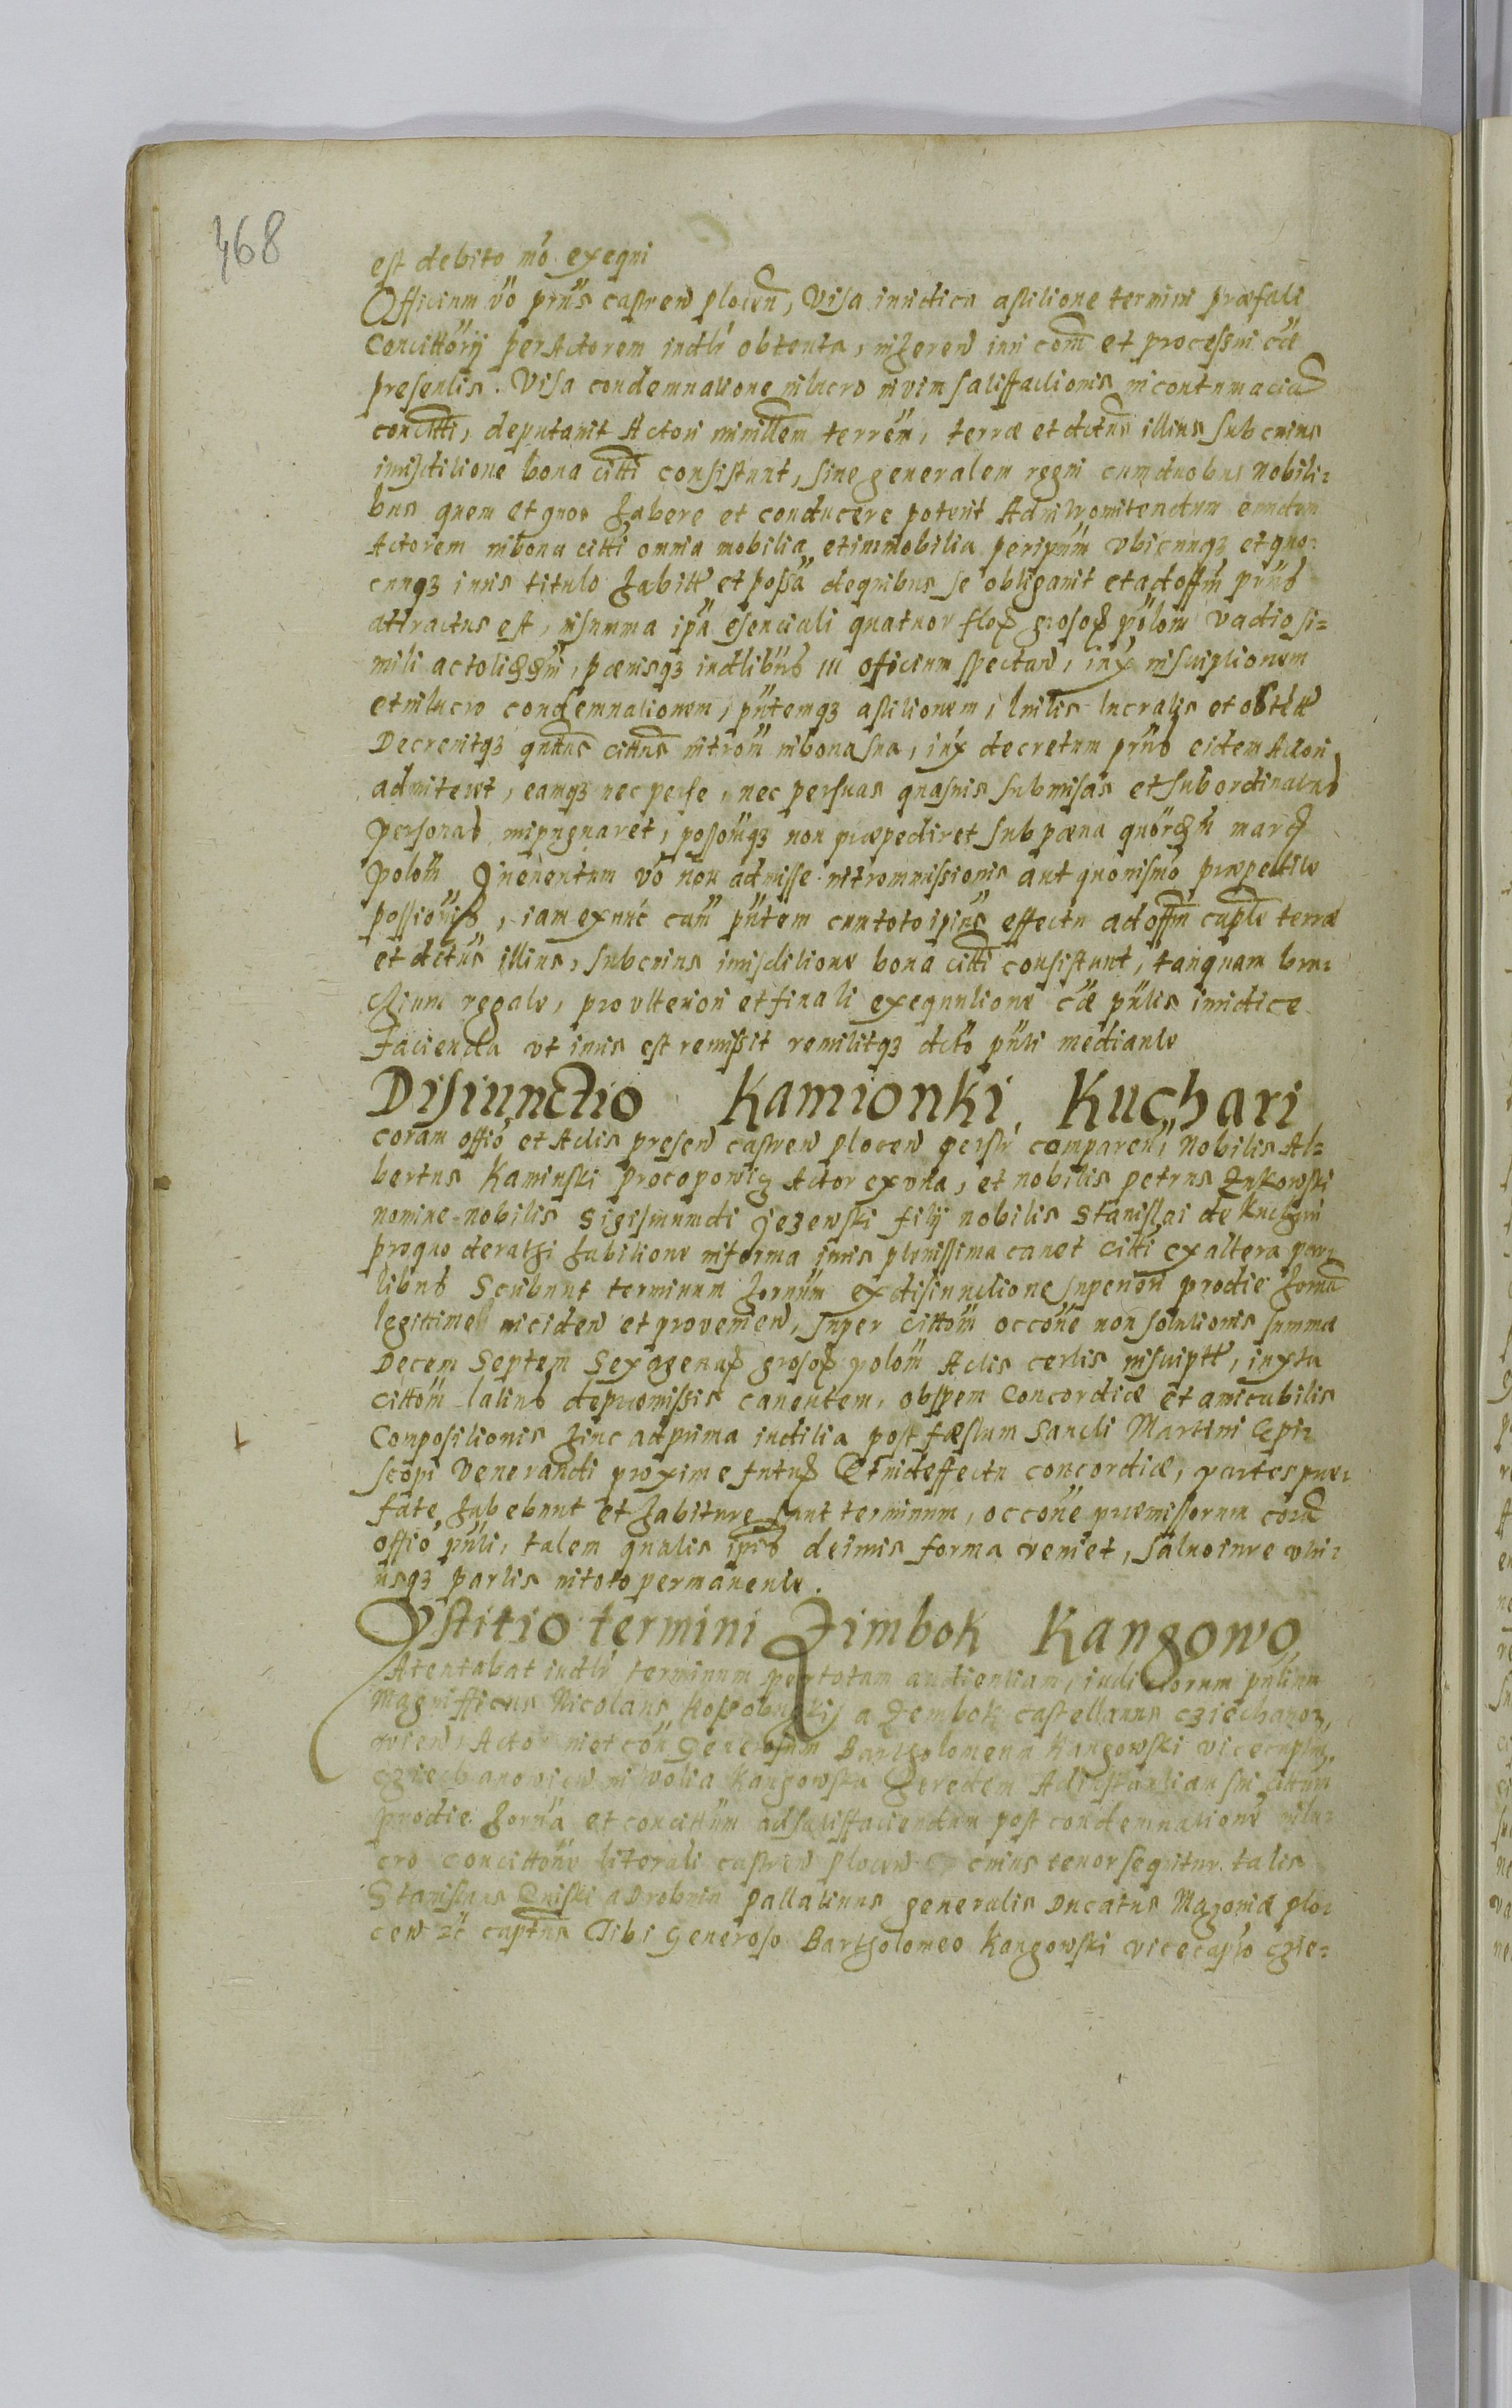 468
est debito mo exequi
Officium vo prns castren plocen, Visa iuridica astitione termini præfati
Concittorÿ per Actorem iudlr obtenta, inheren iuri com et processui cæ
presentis. Visa condemnatione in lucro in vim satisfactionis in contumacia
concitti, deputauit Actori minrlem terren, terræ et dctns illius sub cuius
iurisditione bona citti consistunt, siue generalem regni cum duobus nobili=
bus quem et quos habere et conducere poterit Ad intromitendum eundem
Actorem in bona citti omnia mobilia et immobilia peripum vbicunqz et quo=
cunqz iuris titulo habitt et possa de quibus se obligauit et ad offm prns
attractus est, in summa ipa esenciali quatuor flor grosor polom vadio si=
mili acto lim, pænisqz iudlibus in oficium spectan, iux inscriptionem
et in lucro condemnationem, pntemqz astitionem, lucralis et obtett
Decreuitqz quttus cittus introm in bona sua, iux decretum prns eidem Actori
admiteret, eamqz nec per se, nec per suas quasuis submisas et subordinatas
personas inpugnaret, possomqz non præpediret sub pæna marc
polom In euentum vo non admisse intromissionis aut quouismo præpedite
possionis, iam exnuc cam pntem cum toto ipius effectu ad offm captle terræ
et dctus illius, sub cuius iurisditione bona citti consistunt, tanquam bra=
chium regale, pro vlteriori et finali exequutione cæ pntis iuridice
facienda vt iuris est remissit remititqz dcto pnti mediante
Disiunctio Kamionki Kuchari
coram offio et Actis presen castren plocen persr comparen, Nobilis Al=
bertus Kaminski procopowicz Actor ex vna, et nobilis petrus Zukowski
nomine nobilis Sigismundi Jezewski filÿ nobilis Stanislai de Kuchari
pro quo de rathi habitione in forma iuris plenissima cauet citti ex altera par=
tibus Scribunt terminum hornum ex disiunctione superiori pro die horna
legittime inciden et prouenien, super cittom occone non solutionis summæ
Decem Septem Sexagenar grosor polom Actis certis inscriptt, iuxta
cittom latius de præmissis canentem, ob spem Concordiæ et amicabilis
Compositionis hinc ad prima iuditia post fæstum Sancti Martini Epi=
scopi Venerandi proxime futur Et in deffectu concordiæ, partes præ=
fate habebunt et habiture sunt terminum, occone præmissorum cora
offio pnti, talem qualis ipis de iuris forma veniet, saluo iure vtri=
usqz partis in toto permanente.
Astitio termini Zimbok Kangowo
Atentabat iudlr terminum per totam audientiam, iudiciorum pntium
Magnifficus Nicolaus Kossobuczki, a Zembok castellanus cziechanoz,
uien, Actor in et con Generosum Bartholomeum Kangowski vicecaptm
cziechanouien in Wolia Kangowska heredem Ad instantiam sui cittum
pro die horna et concittum ad satisfaciendum post condemnatione in lu=
cro concittone literali castren plocen cuius tenor sequitur talis
Stanislaus Kriski a Drobnin pallatinus generalis Ducatus Mazoniæ plo=
cen zc captns Tibi Generoso Bartholomeo Kangowski vicecapto czie=